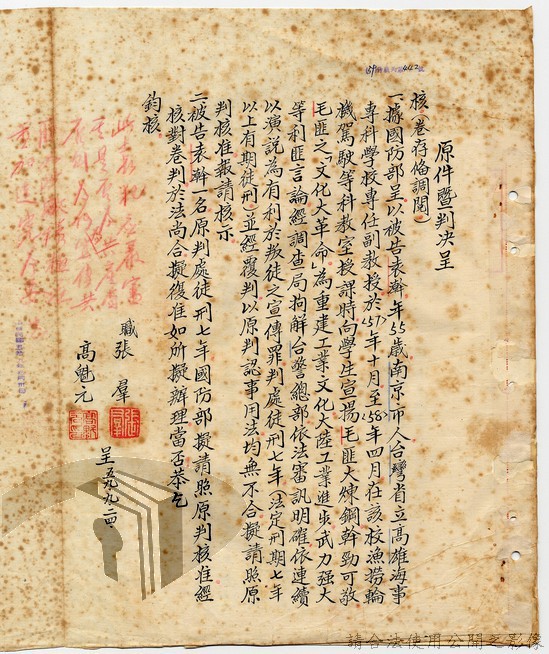 原件暨判決呈
核（卷存俻調閱）
一據國防部呈以被告袁澣年55歲南京市人台灣省立高雄海事
專科學校專任副教授於57年十月至58年四月在該校漁撈輪
機駕駛等科教室授課時向學生宣揚毛匪大煉鋼幹勁可敬
毛匪之「文化大革命」為重建工業文化大陸工業進步武力强大
等利匪言論經調查局拘解台警總部依法審訊明確依連續
以演說為有利於叛徒之宣傳罪判處徒刑七年（法定刑期七年
以上有期徒刑）並經覆判以原判認事用法均無不合擬請照原
判核准報請核示
二被告袁澣一名原判處徒刑七年國防部擬請照原判核准經
核對卷判於法尚合擬復准如所擬辦理當否恭乞
鈞核
職張羣
高魁元
呈五九九二四
請合法使用公開之影像